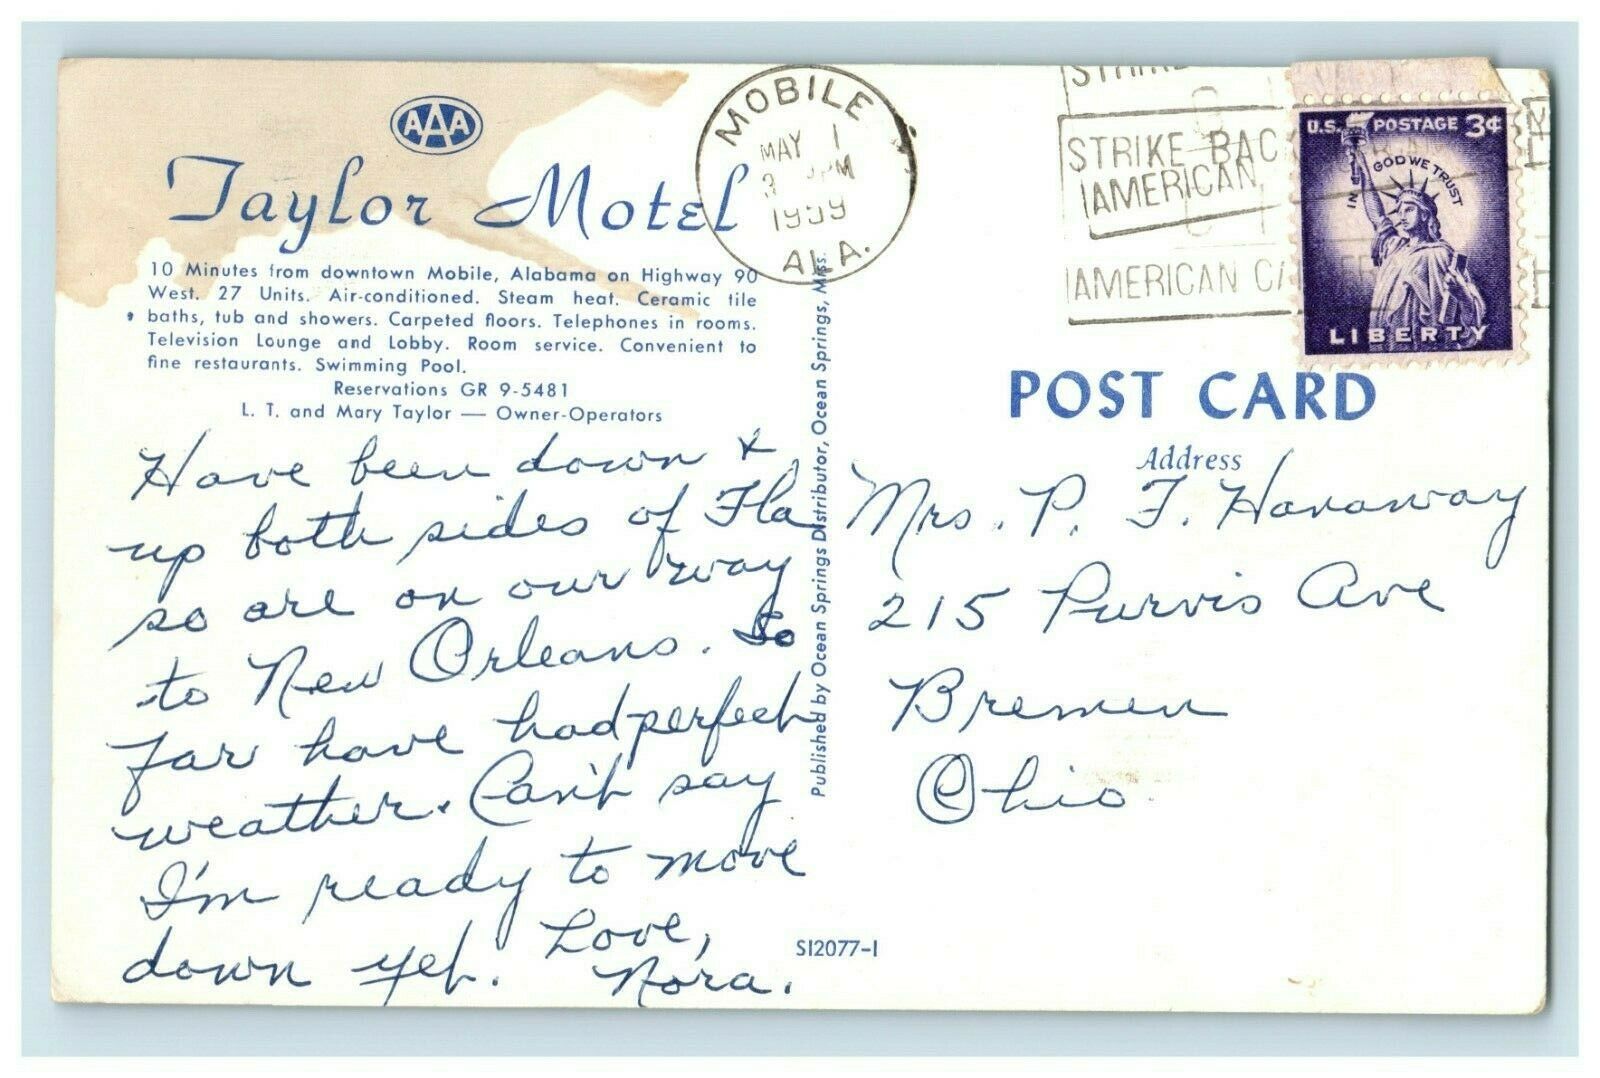 AAA
Taylor Motel
10 Minutes from downtown Mobile, Alabama on Highway 90
West. 27 Units. Air-conditioned. Steam heat. Ceramic tile
baths, tub and showers. Carpeted floors. Telephones in rooms.
Television Lounge and Lobby. Room service. Convenient to
fine restaurants. Swimming Pool.
Reservations GR 9-5481
L. T. and Mary Taylor — Owner-Operators
Have been down &
up both sides of Fla
so are on our way
to New Orleans. So
far have had perfect
weather. Can't say
I'm ready to move
down yet. Love,
Nora.
Published by Ocean Springs Distributor, Ocean Springs, Miss.
SI2077-1
MOBILE
MAY 1
PM
1959
ALA.
STRIKE BAC
AMERICAN
AMERICAN CA
U.S. POSTAGE 3¢
IN GOD WE TRUST
LIBERTY
POST CARD
Address
Mrs. P. F. Haraway
215 Purvis Ave
Bremen
Ohio